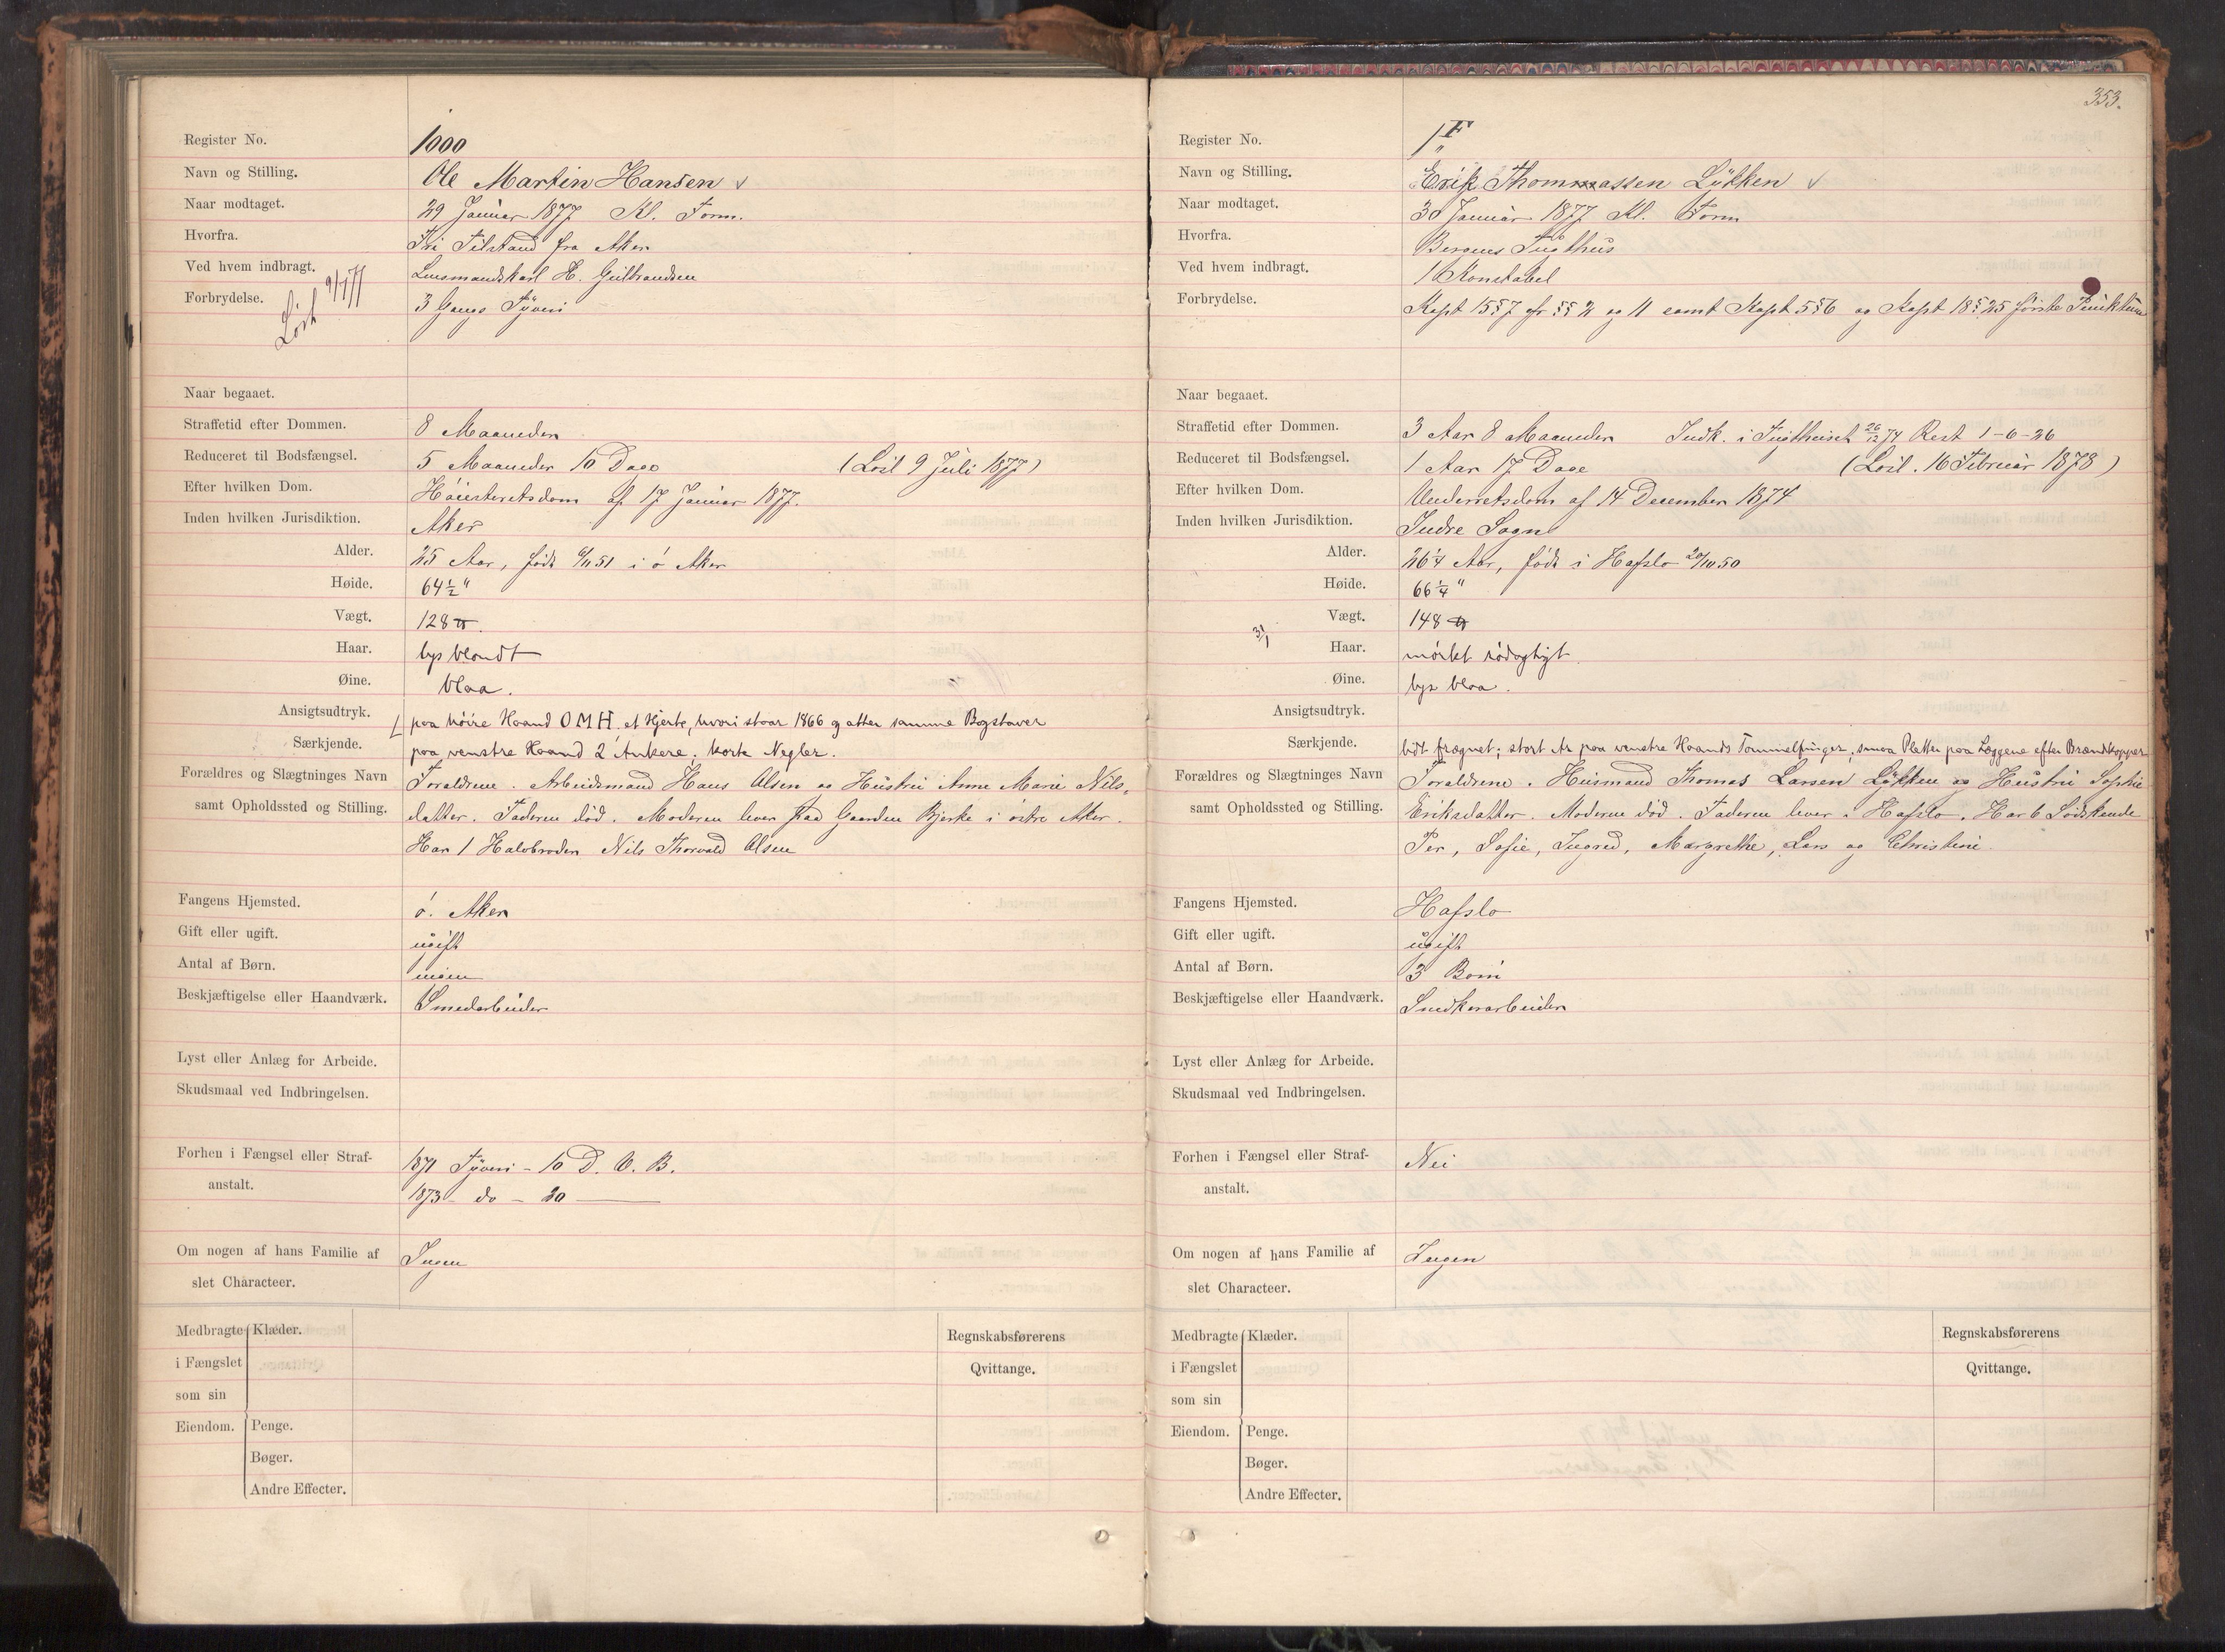 Register No. 1000
Navn og Stilling. Ole Martin Hansen
Naar modtaget. 29 Januar 1877 Kl. Form.
Hvorfra. Fri Tilstand fra Aker
Ved hvem indbragt. Lensmandskarl H. Gulbrandsen
Forbrydelse. Løst 9/7 77 3 Gangs Tyveri
Naar begaaet.
Straffetid efter Dommen. 8 Maaneder
Reduceret til Bodsfængsel. 5 Maaneder 10 Dage (Løsl 9 Juli 1877)
Efter hvilken Dom. Høiesteretsdom af 17 Januar 1877.
Inden hvilken Jurisdiktion. Aker
Alder. 25 Aar, født 6/11 51 i ø Aker
Høide. 64½"
Vægt. 128 ℔.
Haar. lys blondt
Øine. blaa.
Ansigtsudtryk. paa høire Haand OMH, et Hjerte, hvori staar 1866 og atter samme Bogstaver
Særkjende. paa venstre Haand 2 Ankere; korte Negler.
Forældres og Slægtninges Navn Forældrene. Arbeidsmand Hans Olsen og Hustru Anne Marie Nils-
samt Opholdssted og Stilling. datter. Faderen død. Moderen lever paa Gaarden Bjerke i østre Aker.
Har 1 Halvbroder Nils Thorvald Olsen
Fangens Hjemsted. ø. Aker
Gift eller ugift. ugift
Antal af Børn. ingen
Beskjæftigelse eller Haandværk. Smedarbeider
Lyst eller Anlæg for Arbeide.
Skudsmaal ved Indbringelsen.
Forhen i Fængsel eller Straf- 1871 Tyveri - 10 D. V. B.
anstalt. 1873 - do - 20 —
Om nogen af hans Familie af Ingen
slet Characteer.
Medbragte Klæder. Regnskabsførerens
i Fængslet Qvittange.
som sin
Eiendom. Penge.
Bøger.
Andre Effecter.
353.
Register No. 1 F
Navn og Stilling. Erik Thommassen Lykken
Naar modtaget. 30 Januar 1877 Kl. Form
Hvorfra. Bergens Tugthus
Ved hvem indbragt. 1 Konstabel
Forbrydelse. Kapt 15 § 7 cfr §§ 2 og 11 samt Kapt 5 § 6 og Kapt 18 § 25 første Punktum
Naar begaaet.
Straffetid efter Dommen. 3 Aar 8 Maaneder Indk. i Tugthuset 26/12 74 Rest 1-6-26
Reduceret til Bodsfængsel. 1 Aar 17 Dage (Løsl. 16 Februar 1878)
Efter hvilken Dom. Underretsdom af 14 December 1874
Inden hvilken Jurisdiktion. Indre Sogn
Alder. 26¼ Aar, født i Hafslo 20/10 50
Høide. 66¼"
Vægt. 148 ℔
31/1
Haar. mørket rødagtigt
Øine. lys blaa.
Ansigtsudtryk.
Særkjende. lidt frægnet; stort Ar paa venstre Haands Tommelfinger, smaa Pletter paa Læggene efter Brandkopper
Forældres og Slægtninges Navn Forældrene. Husmand Thomas Larsen Lykken og Hustru Sophie
samt Opholdssted og Stilling. Eriksdatter. Moderen død. Faderen lever i Hafslo. Har 6 Sødskende
Per, Sofie, Ingred, Margrethe, Lars og Christine.
Fangens Hjemsted. Hafslo
Gift eller ugift. ugift
Antal af Børn. 3 Børn
Beskjæftigelse eller Haandværk. Snedkerarbeider
Lyst eller Anlæg for Arbeide.
Skudsmaal ved Indbringelsen.
Forhen i Fængsel eller Straf- Nei
anstalt.
Om nogen af hans Familie af Ingen
slet Characteer.
Medbragte Klæder. Regnskabsførerens
i Fængslet Qvittange.
som sin
Eiendom. Penge.
Bøger.
Andre Effecter.